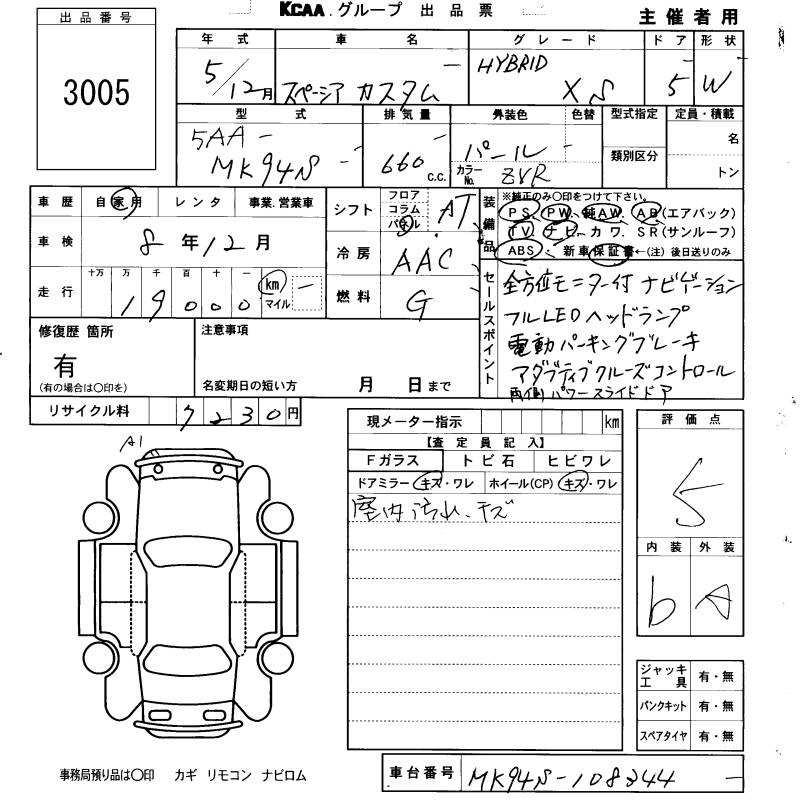 KCAA.グループ 出品票 主催者用
出品番号
3005
年式 車名 グレード ドア 形状
5/12月 スペーシア カスタム HYBRID XS 5 W
型式 排気量 外装色 色替 型式指定 定員・積載
5AA- MK94S 660 c.c. パール カラーNo. ZVR 類別区分 名 トン
車歴 自家用 レンタ 事業.営業車
車検 8年12月
走行 十万 万 千 百 十 一
19000 km マイル
シフト フロア コラム パネル AT
冷房 AAC
燃料 G
装備品 ※純正のみ○印をつけて下さい。
PS. PW. 純AW. AB(エアバック)
TV ナビ カワ. SR(サンルーフ)
ABS 新車保証書←(注)後日送りのみ
セールスポイント
全方位モニター付ナビゲーション
フルLEDヘッドランプ
電動パーキングブレーキ
アダプティブクルーズコントロール
両側パワースライドドア
修復歴 箇所
有
(有の場合は○印を)
注意事項
名変期日の短い方 月 日まで
リサイクル料 7230円
A1
現メーター指示 km
【査定員記入】
Fガラス トビ石 ヒビワレ
ドアミラー キズ・ワレ ホイール(CP) キズ・ワレ
室内汚れ、キズ
評価点
5
内装 外装
b A
ジャッキ工具 有・無
パンクキット 有・無
スペアタイヤ 有・無
事務局預り品は○印 カギ リモコン ナビロム
車台番号 MK94S-108344